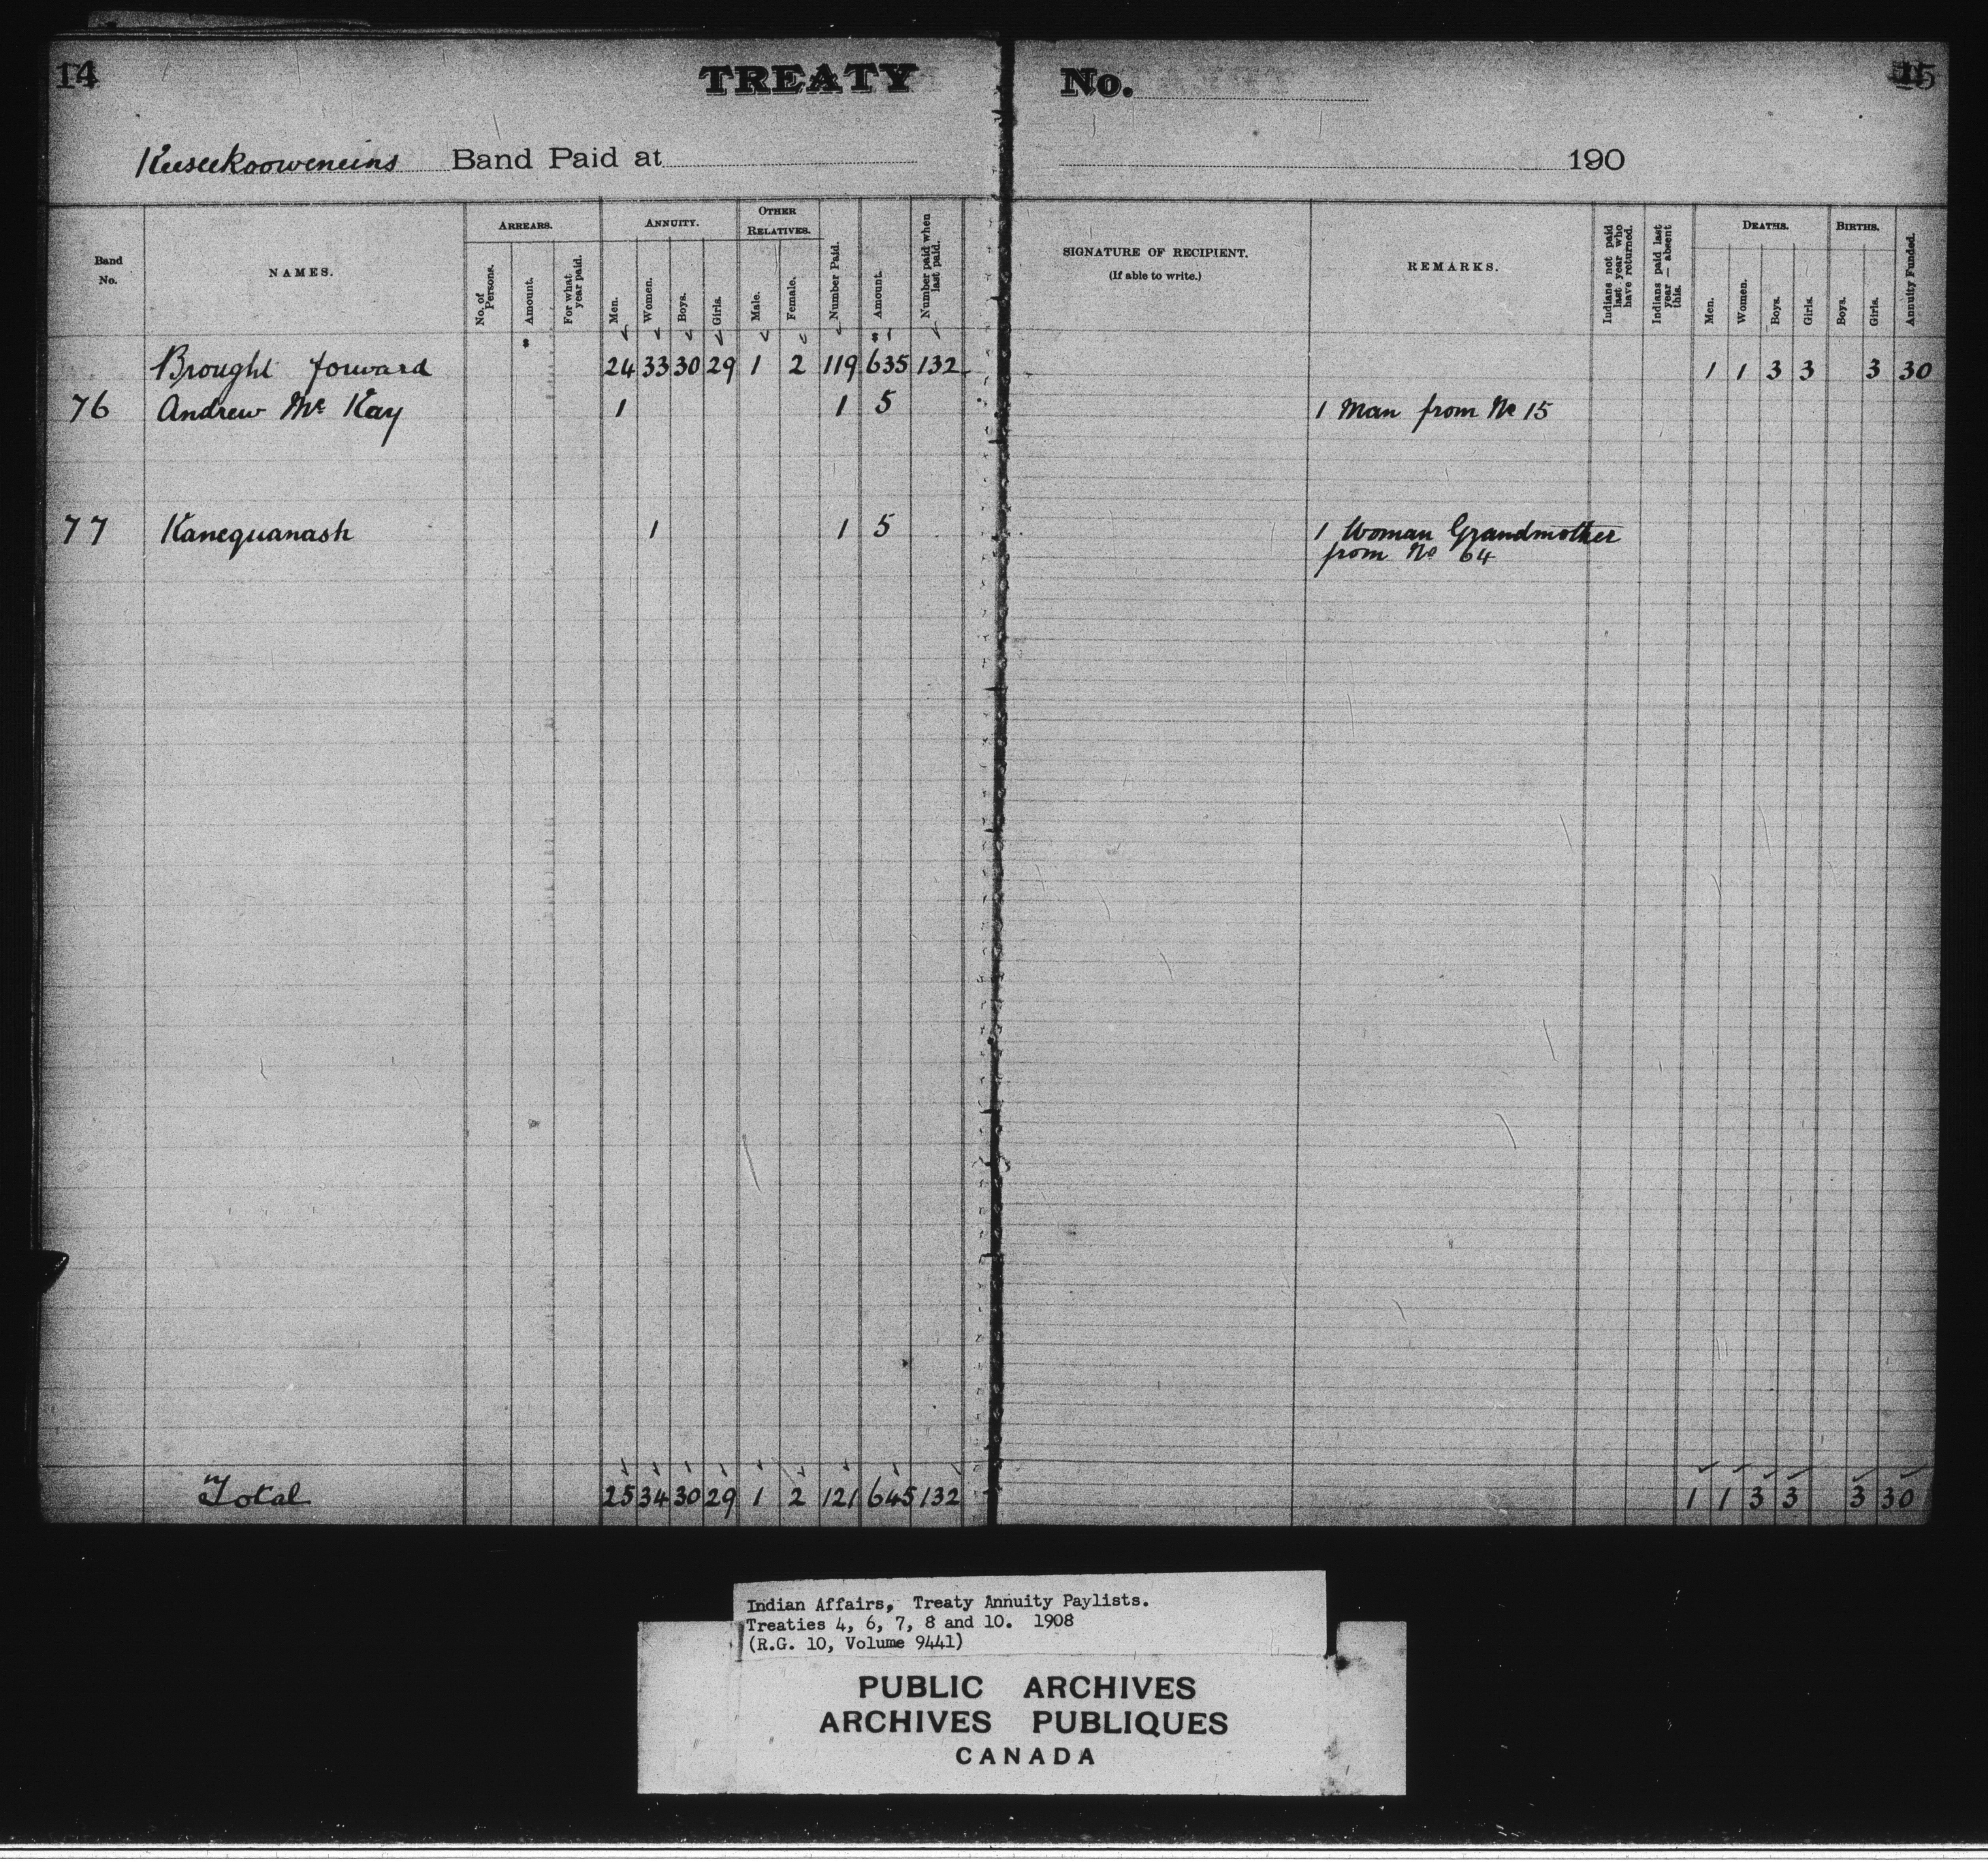 14 TREATY No. 15
Keeseekooweneins Band Paid at 190
Band No. NAMES. ARREARS. No. of Persons. Amount. For what year paid. ANNUITY. Men. Women. Boys. Girls. OTHER RELATIVES. Male. Female. Number Paid. Amount. Number paid when last paid. SIGNATURE OF RECIPIENT. (If able to write.) REMARKS. Indians not paid last year who have returned. Indians paid last year — absent this. DEATHS. Men. Women. Boys. Girls. BIRTHS. Boys. Girls. Annuity Funded.
Brought forward 24 33 30 29 1 2 119 635 132 1 1 3 3 3 30
76 Andrew Mc Kay 1 1 5 1 Man from No 15
77 Kanequanash 1 1 5 1 Woman Grandmother
from No 64
Total 25 34 30 29 1 2 121 645 132 1 1 3 3 3 30
Indian Affairs, Treaty Annuity Paylists.
Treaties 4, 6, 7, 8 and 10. 1908
(R.G. 10, Volume 9441)
PUBLIC ARCHIVES
ARCHIVES PUBLIQUES
CANADA